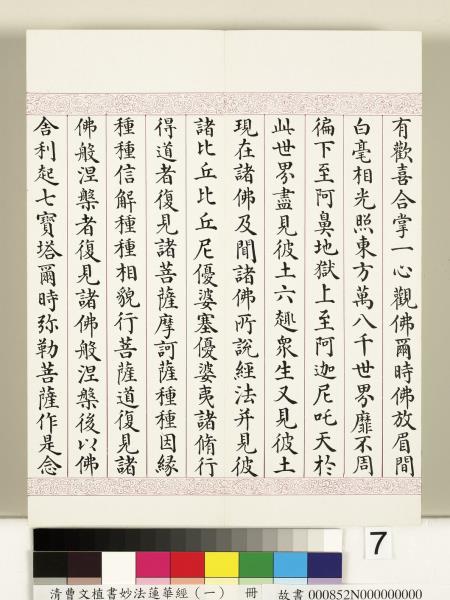 有歡喜合掌一心觀佛爾時佛放眉間
白毫相光照東方萬八千世界靡不周
徧下至阿鼻地獄上至阿迦尼吒天於
此世界盡見彼土六趣衆生又見彼土
現在諸佛及聞諸佛所說經法并見彼
諸比丘比丘尼優婆塞優婆夷諸脩行
得道者復見諸菩薩摩訶薩種種因緣
種種信解種種相貌行菩薩道復見諸
佛般涅槃者復見諸佛般涅槃後以佛
舍利起七寶塔爾時弥勒菩薩作是念
7
清曹文植書妙法蓮華經(一) 冊 故書000852N000000000